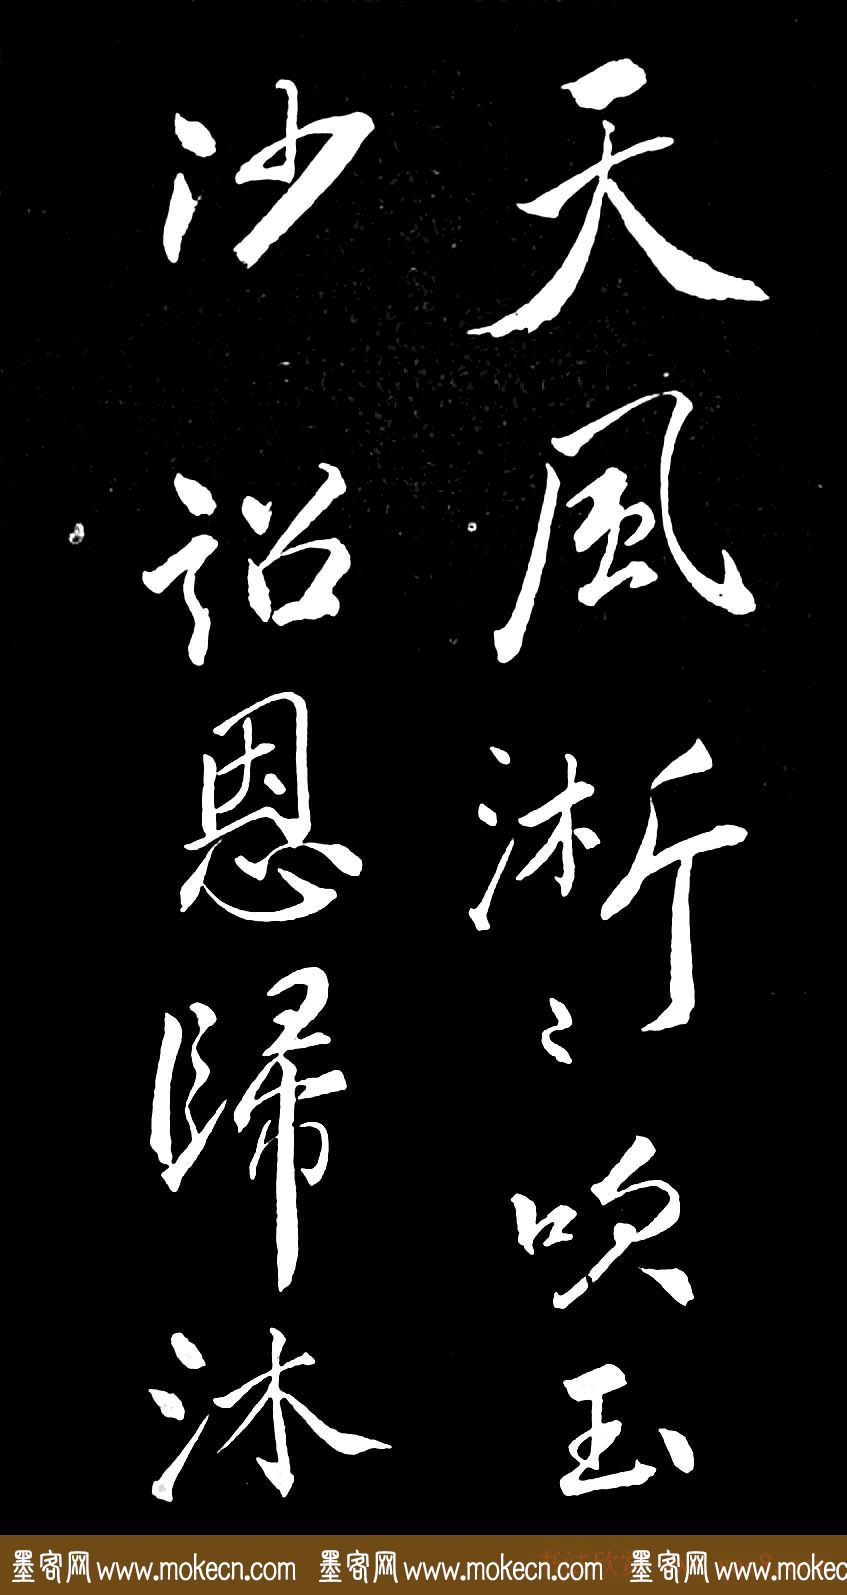 天風淅〻吹玉
沙詔恩歸沐
墨客网 www.mokecn.com 墨客网 www.mokecn.com 墨客网 www.mokecn.com